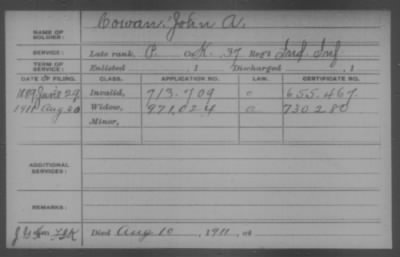 NAME OF SOLDIER: Cowan, John A.
SERVICE: Late rank, P. Co. K. 37 Reg't Ind Inf
TERM OF SERVICE: Enlisted , 1 Discharged , 1
DATE OF FILING. CLASS. APPLICATION NO. LAW. CERTIFICATE NO.
1889 June 29 Invalid, 713.709 c 655.467
1911 Aug 20 Widow, 971,024 a 730280
Minor,
ADDITIONAL SERVICES:
REMARKS:
Died Aug 10, 1911, at